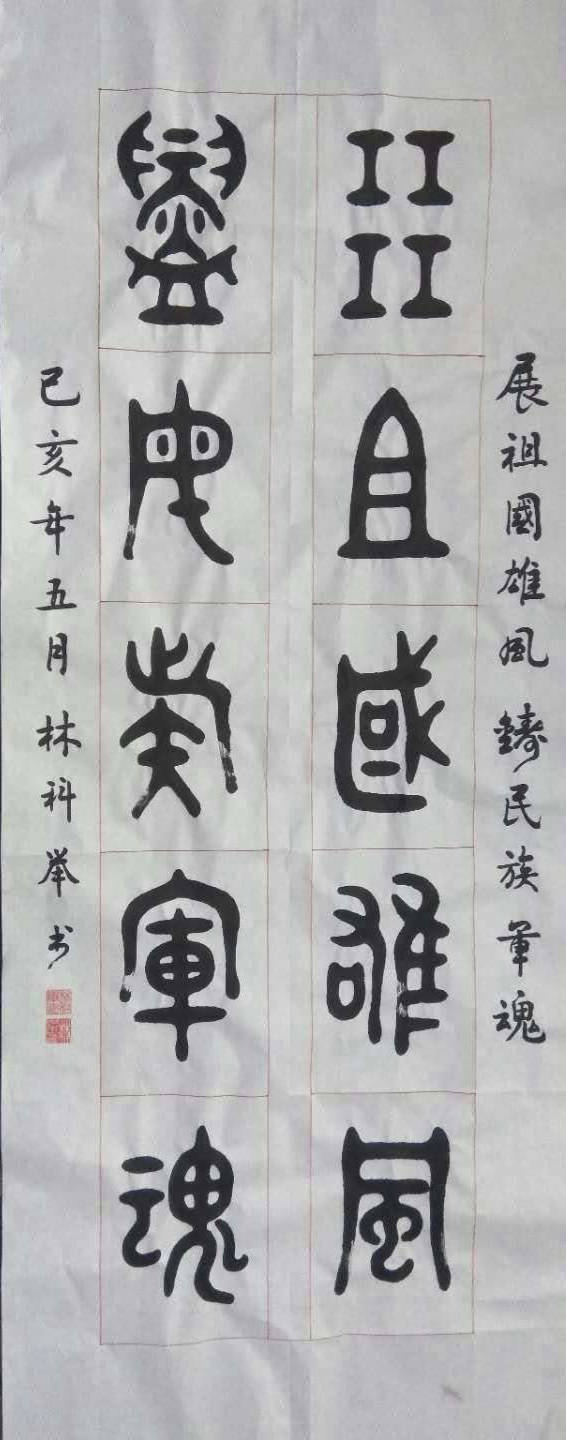 展祖國雄風鑄民族軍魂
展祖國雄風
鑄民族軍魂
己亥年五月林科举书